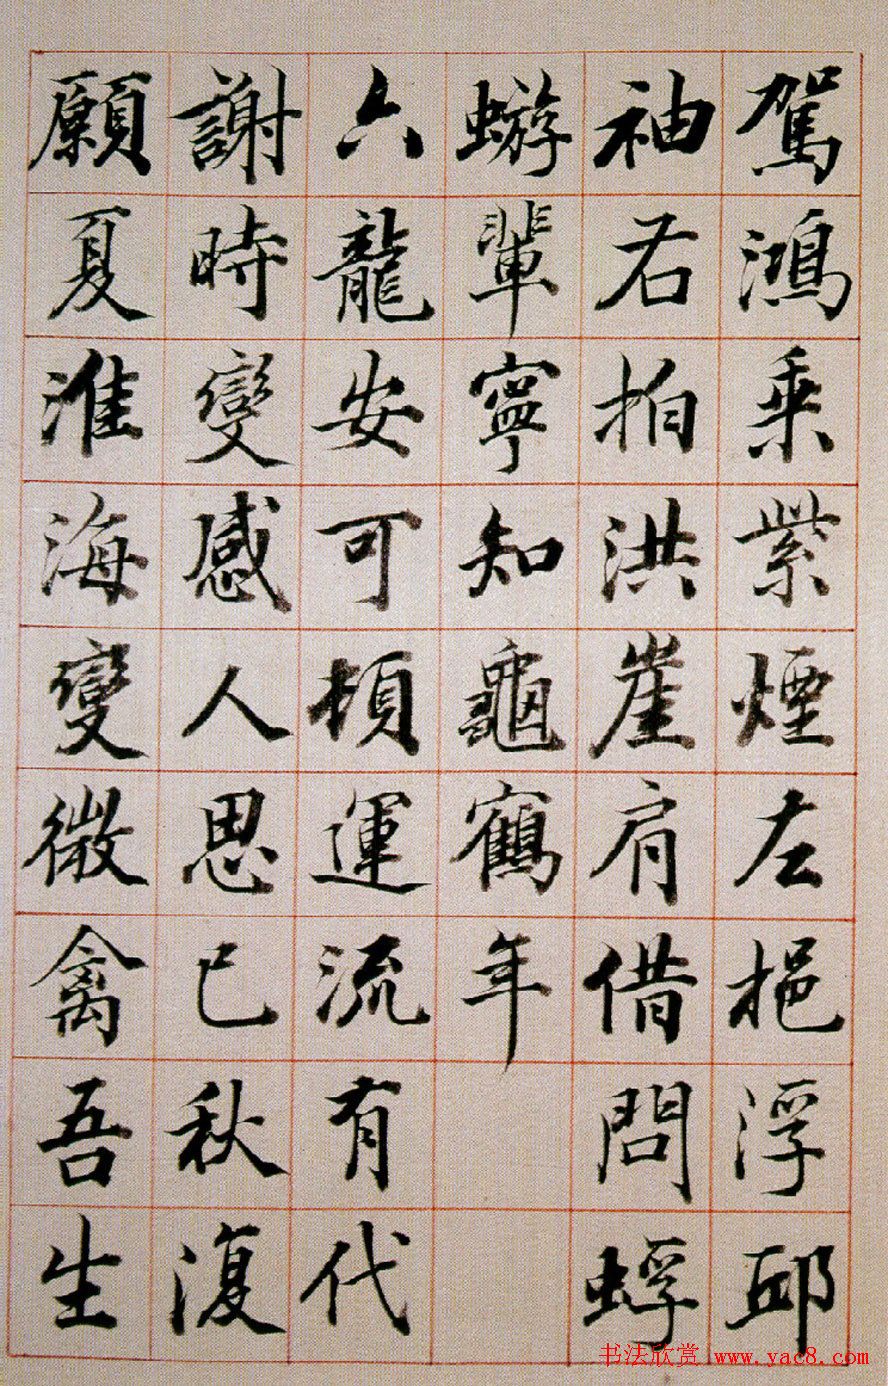 駕鴻乘紫煙左挹浮邱
袖右拍洪崖肩借問蜉
蝣輩寧知龜鶴年
六龍安可頓運流有代
謝時變感人思已秋復
願夏淮海變微禽吾生
书法欣赏 www.yac8.com